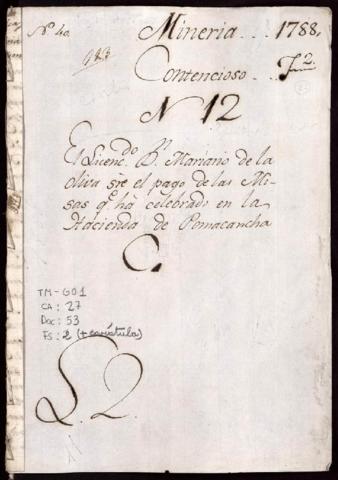 Nº 40.
Mineria... 1788,,
983
Contencioso..
N 12
El Licenc.do Dn. Mariano de la
oliva sre el pago de las Mi-
sas qe ha celebrado en la
Hacienda de Pomacancha
C.
TM-GO1
CA: 27
Doc: 53
Fs: 2 (+ carátula)
L. 2